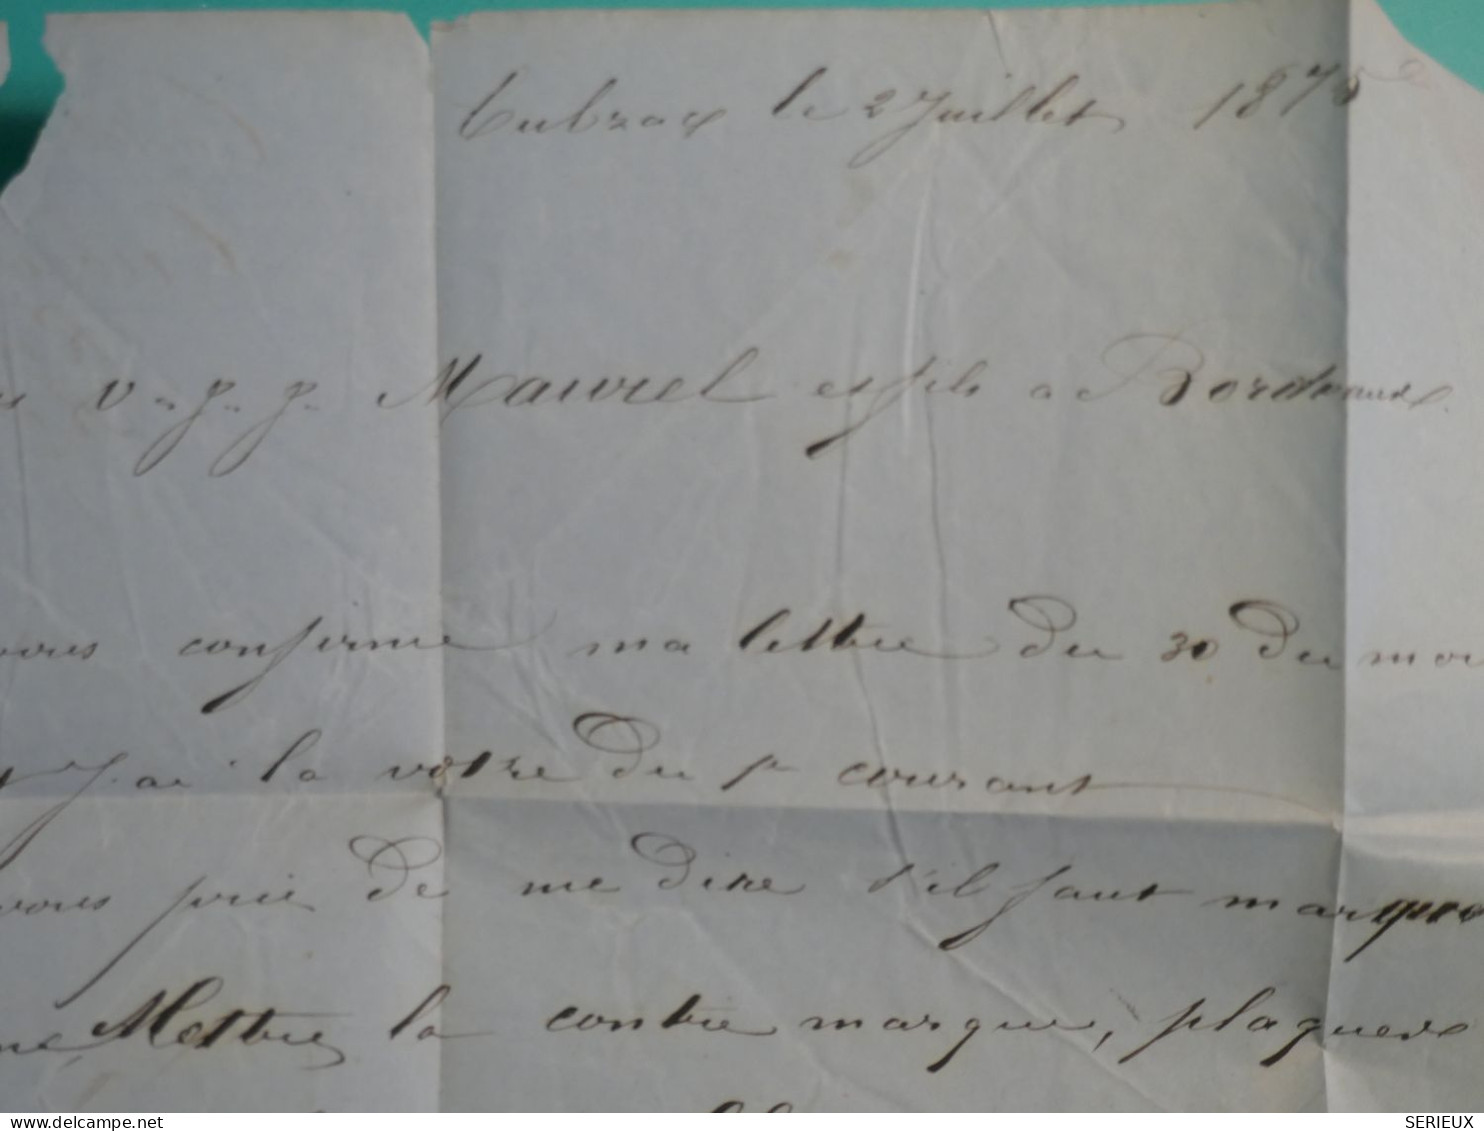 Cubzac le 2 Juillet 1875
V. J. J. Maurel et fils a Bordeaux
vous confirme ma lettre du 30 du moi
J'ai la votre du 1er courant
vous prie de me dire s'il faut marque
Mettre la contre marque, plaquer
SERIEUX